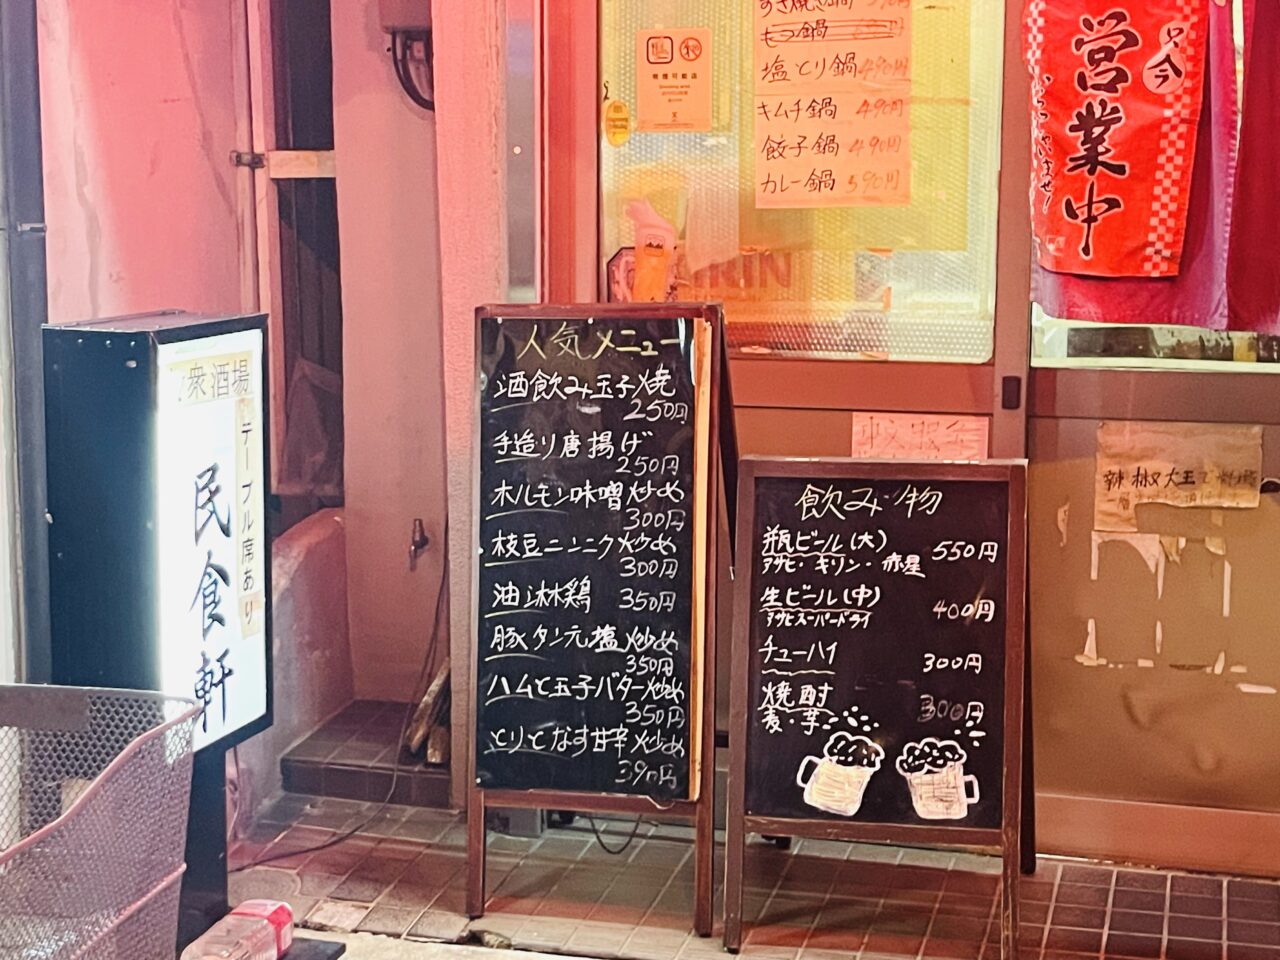 衆酒場
テーブル席あり
民食軒
人気メニュー
酒飲み玉子焼
250円
手造り唐揚げ
250円
ホルモン味噌炒め
300円
枝豆ニンニク炒め
300円
油淋鶏 350円
豚タン元塩炒め
350円
ハムと玉子バター炒め
350円
とりとなす甘辛炒め
390円
すき焼き鍋 590円
もつ鍋
塩とり鍋 490円
キムチ鍋 490円
餃子鍋 490円
カレー鍋 590円
喫煙可能店
KIRIN
只今
営業中
いらっしゃませ!
飲み物
瓶ビール(大) 550円
アサヒ・キリン・赤星
生ビール(中) 400円
アサヒスーパードライ
チューハイ 300円
焼酎 300円
麦・芋
辣椒大王